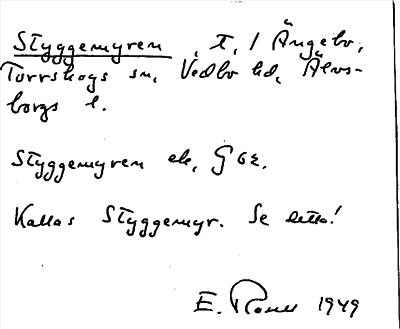 Styggemyren, t. 1 Ängebo,
Torrskogs sn, Vedbo hd, Älvs-
borgs l.
Styggemyren ek,
Kallas Styggemyr. Se detta!
E. 1949